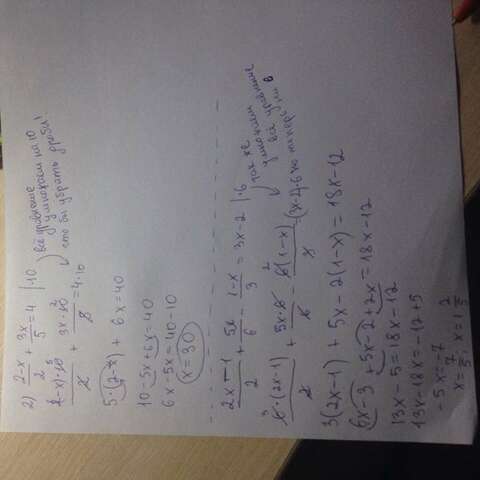 2) (2-x)/2 + 3x/5 = 4 |·10
всё уравнение
умножаем на 10
что бы убрать дроби!
(2-x)·10/2 + 3x·10/5 = 4·10
5·(2-x) + 6x = 40
10 - 5x + 6x = 40
6x - 5x = 40 - 10
x = 30
(2x-1)/2 + 5x/6 - (1-x)/3 = 3x - 2 |·6
так же
умножаем
всё уравнение
6·(2x-1)/2 + 5x·6/6 - 6(1-x)/3 = (3x-2)·6
3(2x-1) + 5x - 2(1-x) = 18x - 12
6x - 3 + 5x - 2 + 2x = 18x - 12
13x - 5 = 18x - 12
13x - 18x = -12 + 5
-5x = -7
x = 7/5, x = 1 2/5